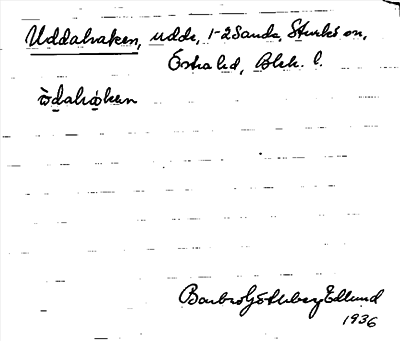 Uddahaken, udde, 1-2 Sanda, Sturkö sn,
Östra hd, Blek. l.
ὸdahȧken
Barbro Götlberg Edlund
1936